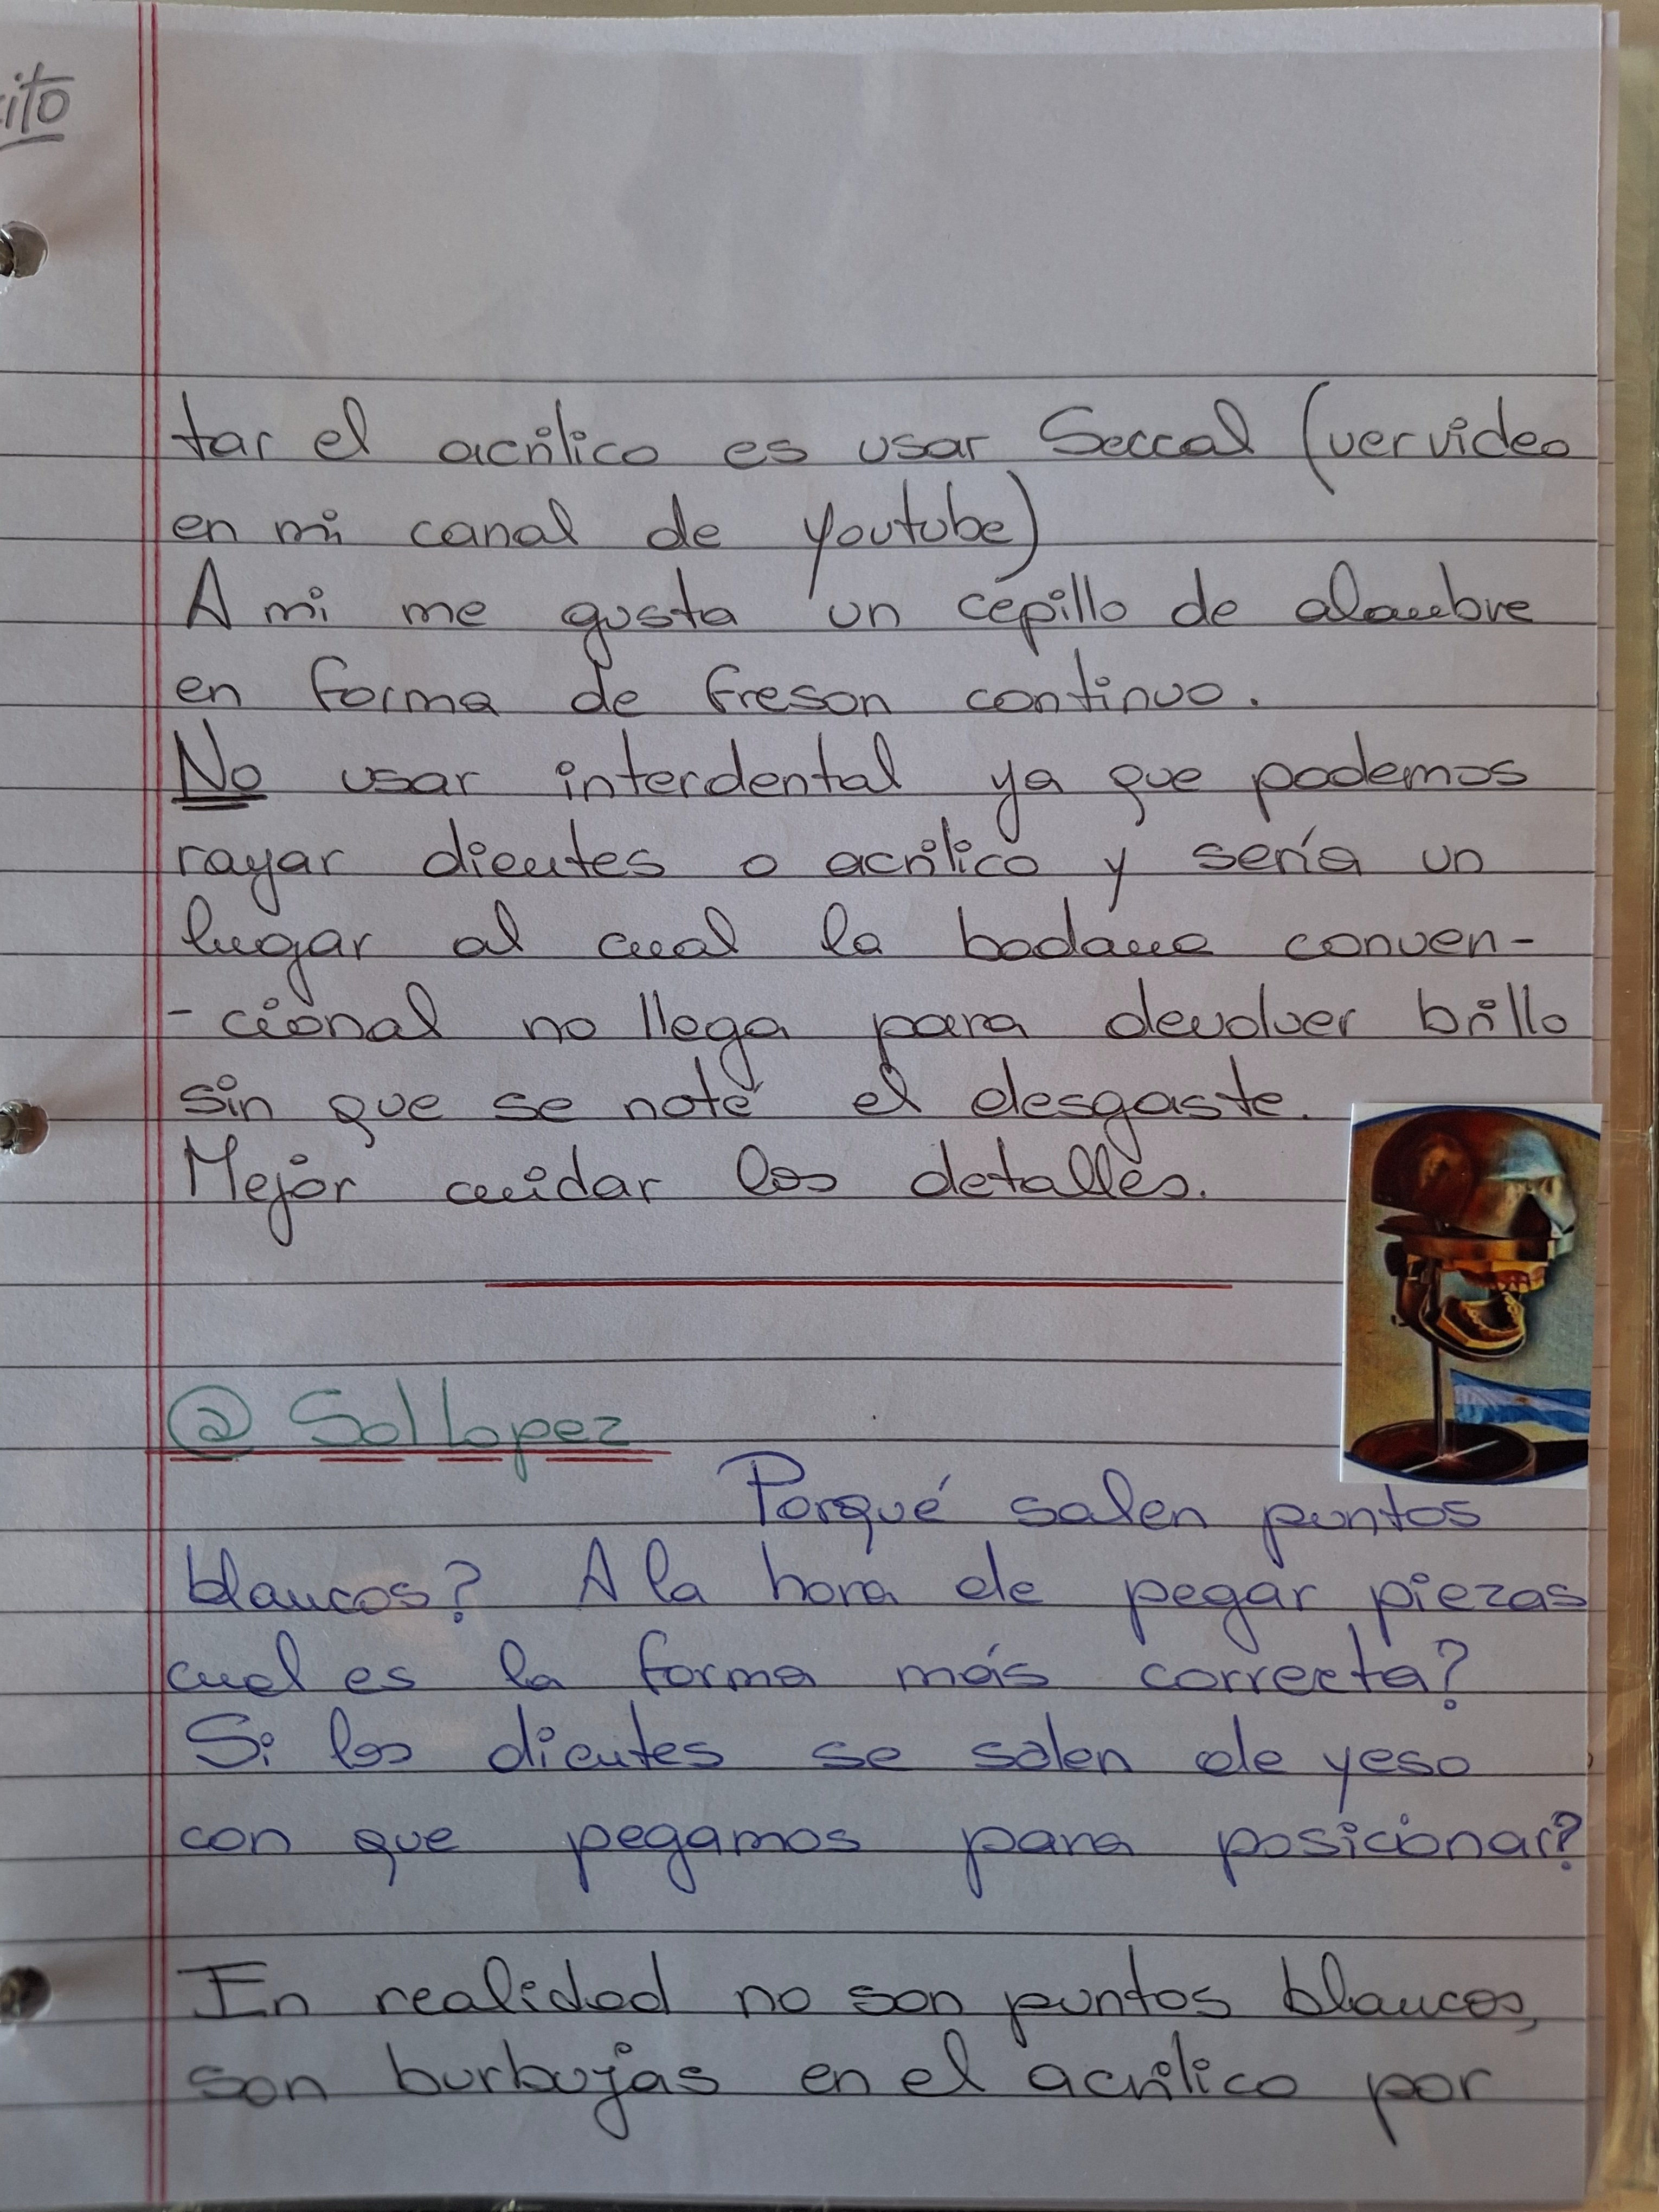 ito
tar el acrílico es usar Seccal (ver video
en mi canal de youtube)
A mi me gusta un cepillo de alambre
en forma de freson continuo.
No usar interdental ya que podemos
rayar dientes o acrílico y sería un
lugar al cual la badana conven-
-cional no llega para devolver brillo
sin que se note el desgaste.
Mejor cuidar los detalles.
@ Sol Lopez
Porqué salen puntos
blancos? A la hora de pegar piezas
cual es la forma más correcta?
Si los dientes se salen de yeso
con que pegamos para posicionar?
En realidad no son puntos blancos,
son burbujas en el acrílico por